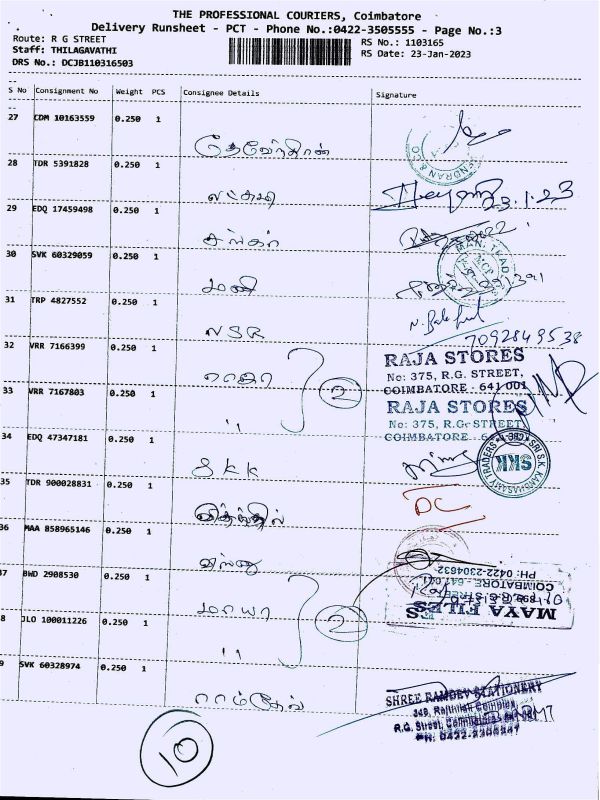 THE PROFESSIONAL COURIERS, Coimbatore
Delivery Runsheet - PCT - Phone No.:0422-3505555 - Page No.:3
Route: R G STREET
RS No.: 1103165
Staff: THILAGAVATHI
RS Date: 23-Jan-2023
DRS No.: DCJB110316503
S No Consignment No Weight PCS Consignee Details Signature
27 CDM 10163559 0.250 1
ENDRAN & CO
28 TDR 5391828 0.250 1
லட்சுமி
23.1.23
29 EDQ 17459498 0.250 1
சங்கர்
30 SVK 60329059 0.250 1
மணி
31 TRP 4827552 0.250 1
NSR
7092849538
32 VRR 7166399 0.250 1
ராஜா
2
RAJA STORES
No: 375, R.G. STREET,
COIMBATORE - 641 001
33 VRR 7167803 0.250 1
"
RAJA STORES
No: 375, R.G. STREET
COIMBATORE
34 EDQ 47347181 0.250 1
SKK
SRI S.K. KANDHASAMY TRADERS
SKK
35 TDR 900028831 0.250 1
DC
36 MAA 858965146 0.250 1
37 BWD 2908530 0.250 1
மாயா
2
MAYA FILES
COIMBATORE - 641 001
PH: 0422-2304632
8 JLO 100011226 0.250 1
"
9 SVK 60328974 0.250 1
ராம்தேவ்
SHREE RAMDEV STATIONERY
R.G. Street, Coimbatore
10